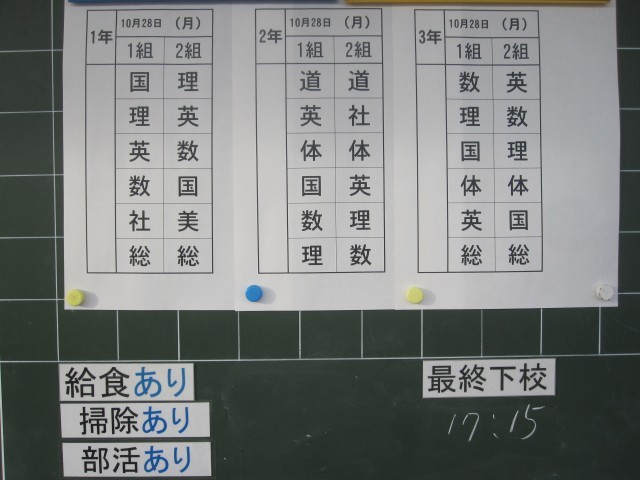 1年 10月28日 (月)
1組 2組
国 理
理 英
英 数
数 国
社 美
総 総
2年 10月28日 (月)
1組 2組
道 道
英 社
体 体
国 英
数 理
理 数
3年 10月28日 (月)
1組 2組
数 英
理 数
国 理
体 体
英 国
総 総
給食あり
掃除あり
部活あり
最終下校
17:15